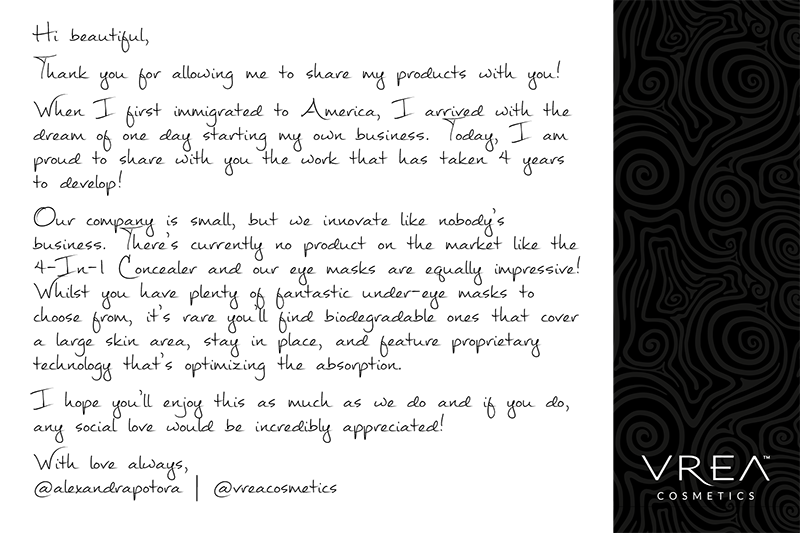 Hi beautiful,
Thank you for allowing me to share my products with you!
When I first immigrated to America, I arrived with the
dream of one day starting my own business. Today, I am
proud to share with you the work that has taken 4 years
to develop!
Our company is small, but we innovate like nobody's
business. There's currently no product on the market like the
4-In-1 Concealer and our eye masks are equally impressive!
Whilst you have plenty of fantastic under-eye masks to
choose from, it's rare you'll find biodegradable ones that cover
a large skin area, stay in place, and feature proprietary
technology that's optimizing the absorption.
I hope you'll enjoy this as much as we do and if you do,
any social love would be incredibly appreciated!
With love always,
@alexandrapotora | @vreacosmetics
VREA™
COSMETICS